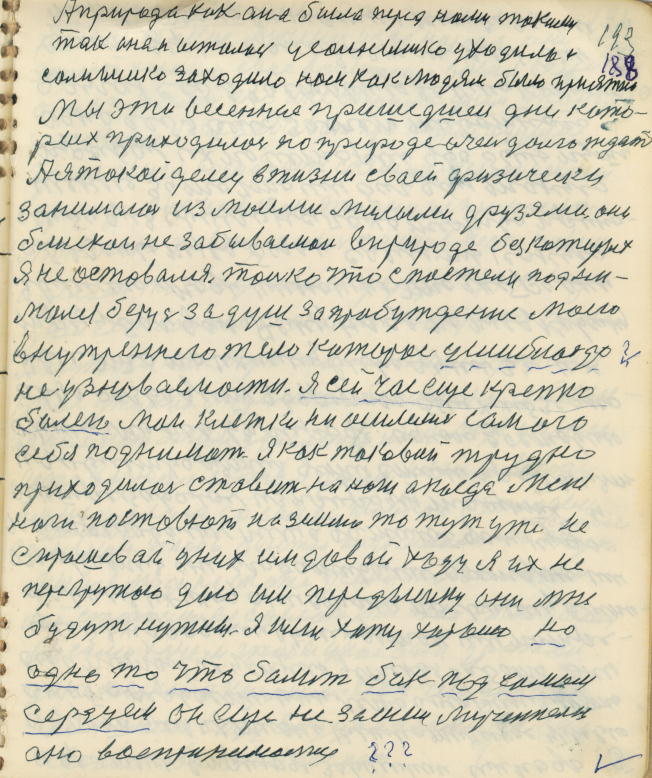 А природа как она была перед нами такими
193
так она и осталась у солнышко уходило и
188
солнышко заходило нам как людям было приятно
Мы эти весенное пришедшеи дни като-
рых приходилося по природе очен долго ждать
А я такой делец в жизни своей физически
занимался из моими милыми друзями они
близкои не забываемои в природе без каторых
Я не оставался. только что с постели подни-
мался берус за душ за пробуждение моего
внутреннего тело которое ушибло до
не узноваемости. Я сей час еще крепко
болею мои клетки самого
себя поднимать. Я как таковой трудно
приходилося ставит на ноги а когда мене
ноги поставют на землю то тут уже не
спрашевай у них им давай ходу я их не
перегружаю даю им передышку они мне
будут нужны. Я ими хажу хорошо но
одно то что болит бок под самым
серцем он еще не
оно воспринимание ???